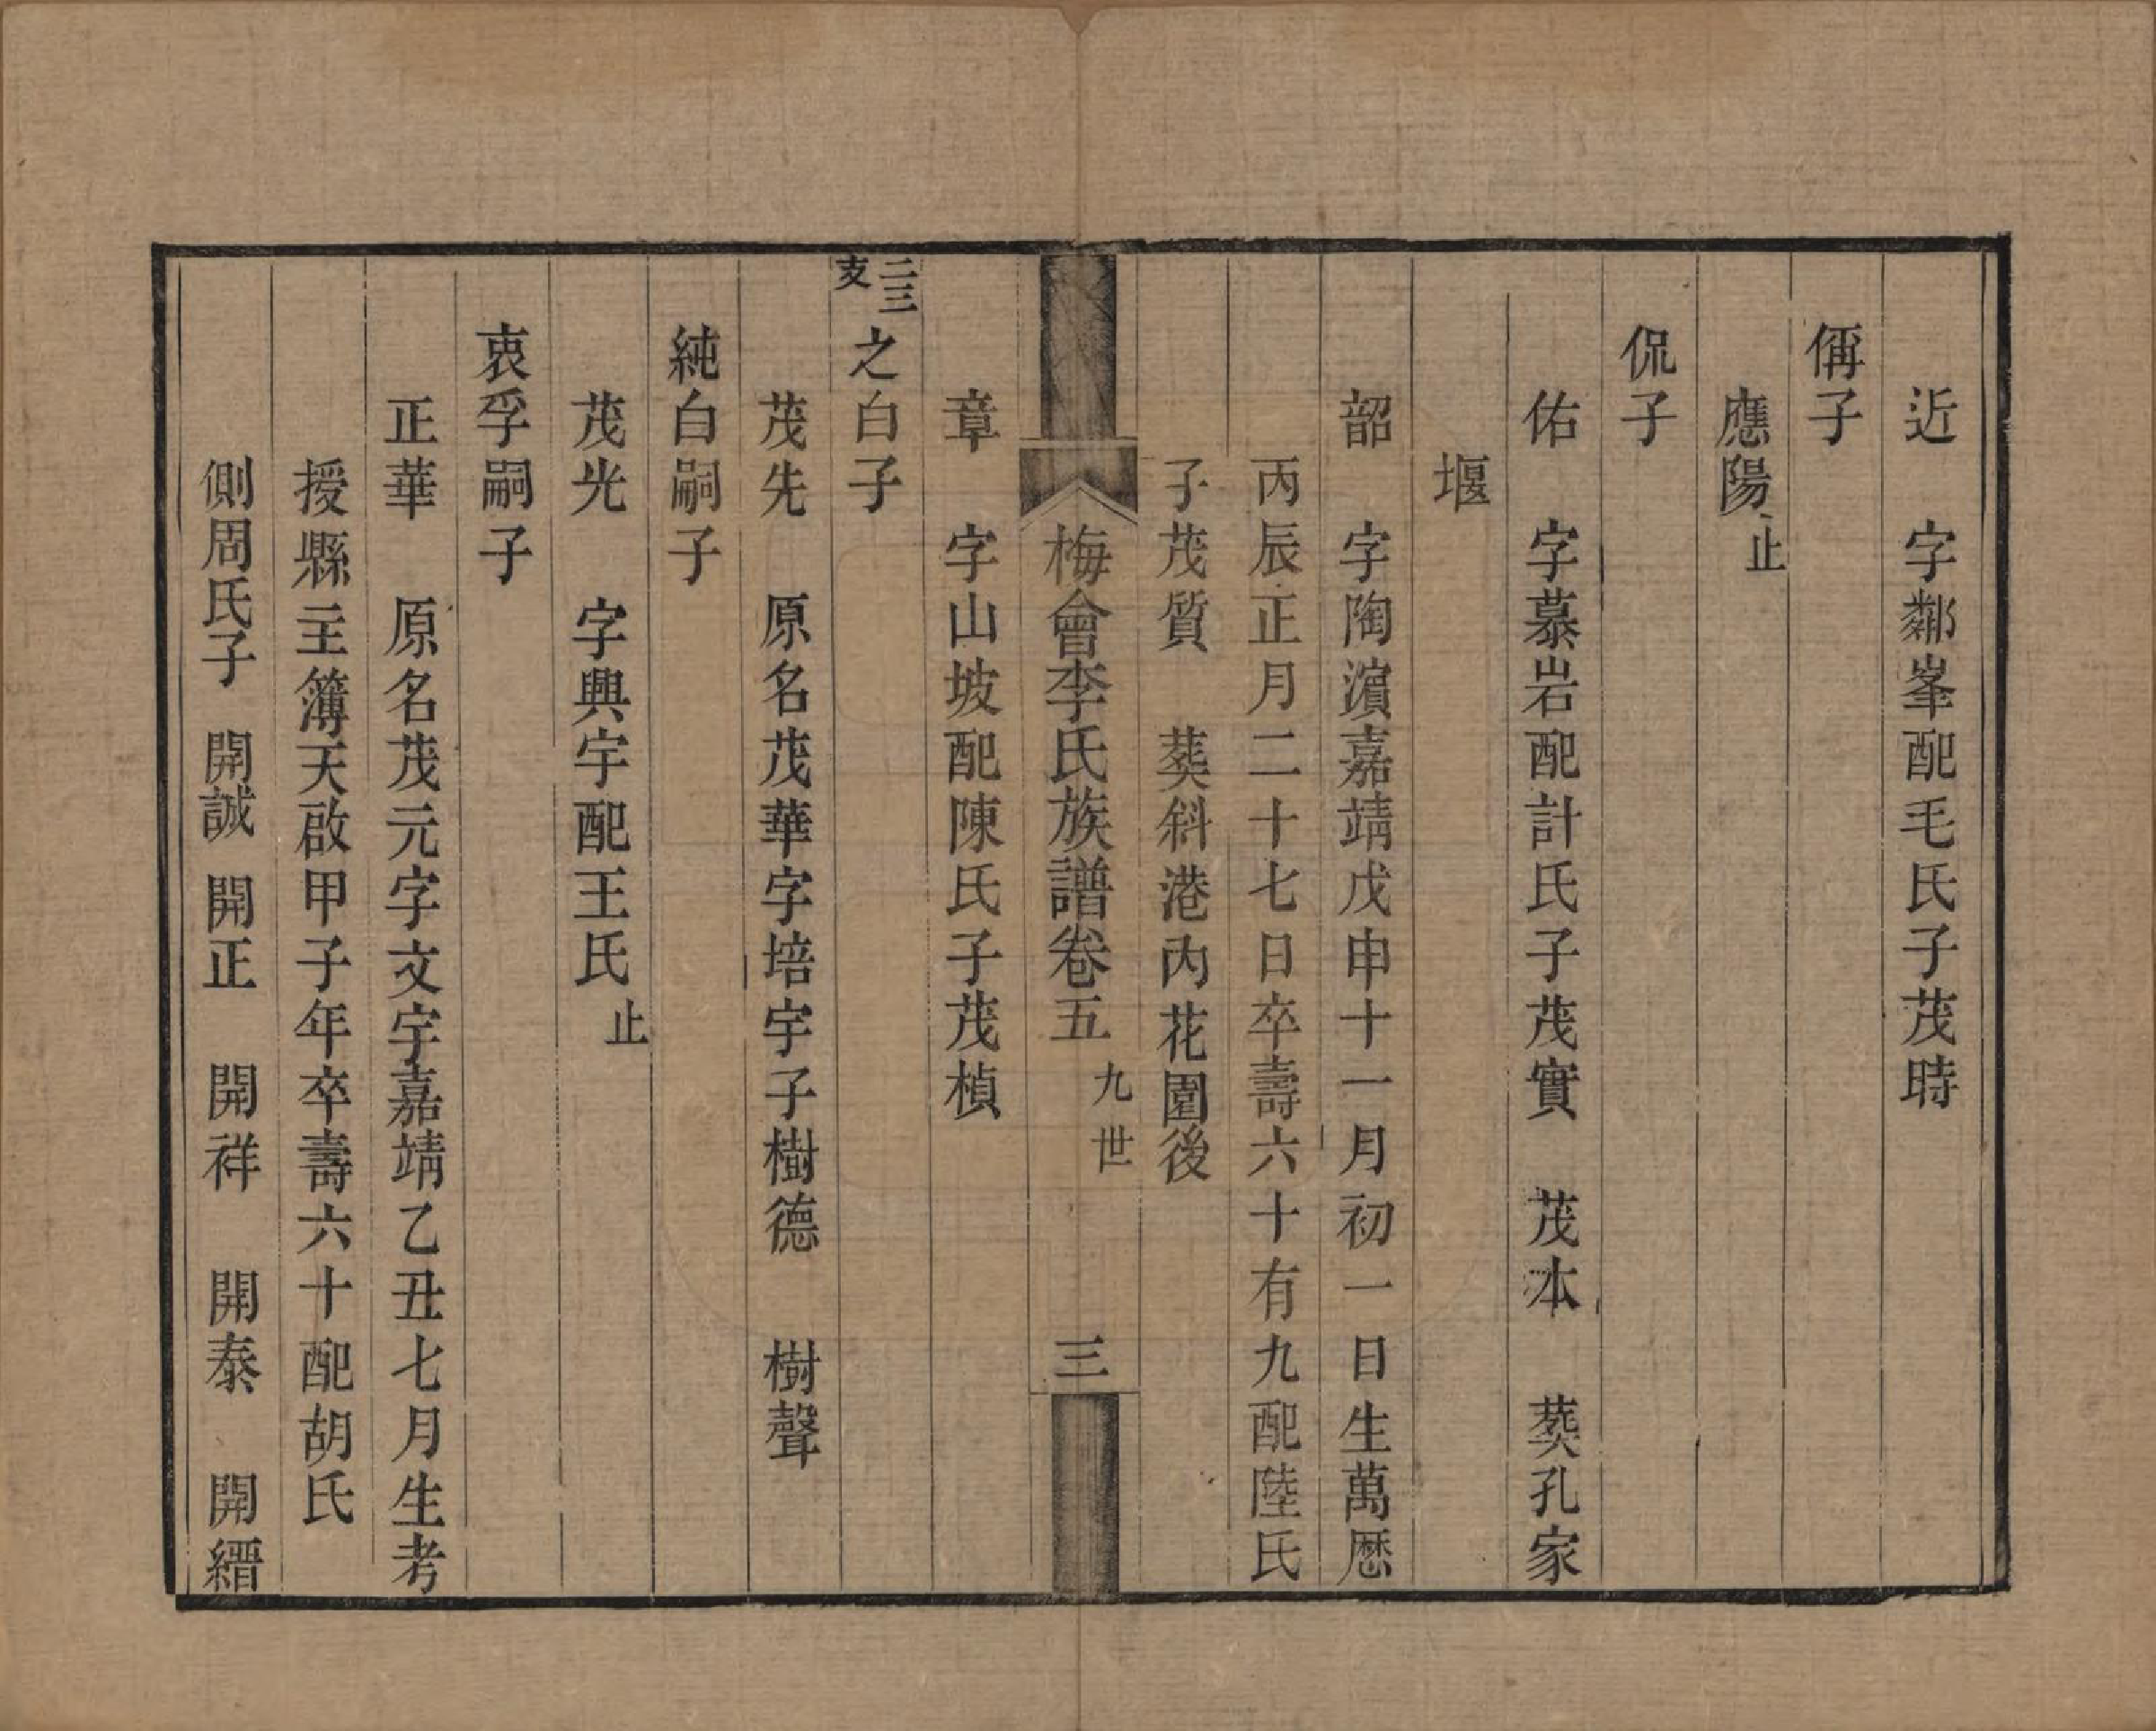 近　字鄰峯配毛氏子茂時
偁子
應陽止
侃子
佑　字慕岩配計氏子茂實　茂本　葬孔家
堰
韶　字陶濵嘉靖戊申十一月初一日生萬厯
丙辰正月二十七日卒壽六十有九配陸氏
子茂質　葬斜港內花園後
章　字山坡配陳氏子茂楨
梅會李氏族譜卷五　九世　三
二三支
之白子
茂先　原名茂華字培宇子樹德　樹聲
純白嗣子
茂光　字興宇配王氏止
衷孚嗣子
正華　原名茂元字文宇嘉靖乙丑七月生考
授縣主簿天啟甲子年卒壽六十配胡氏
側周氏子　開誠　開正　開祥　開泰　開縉